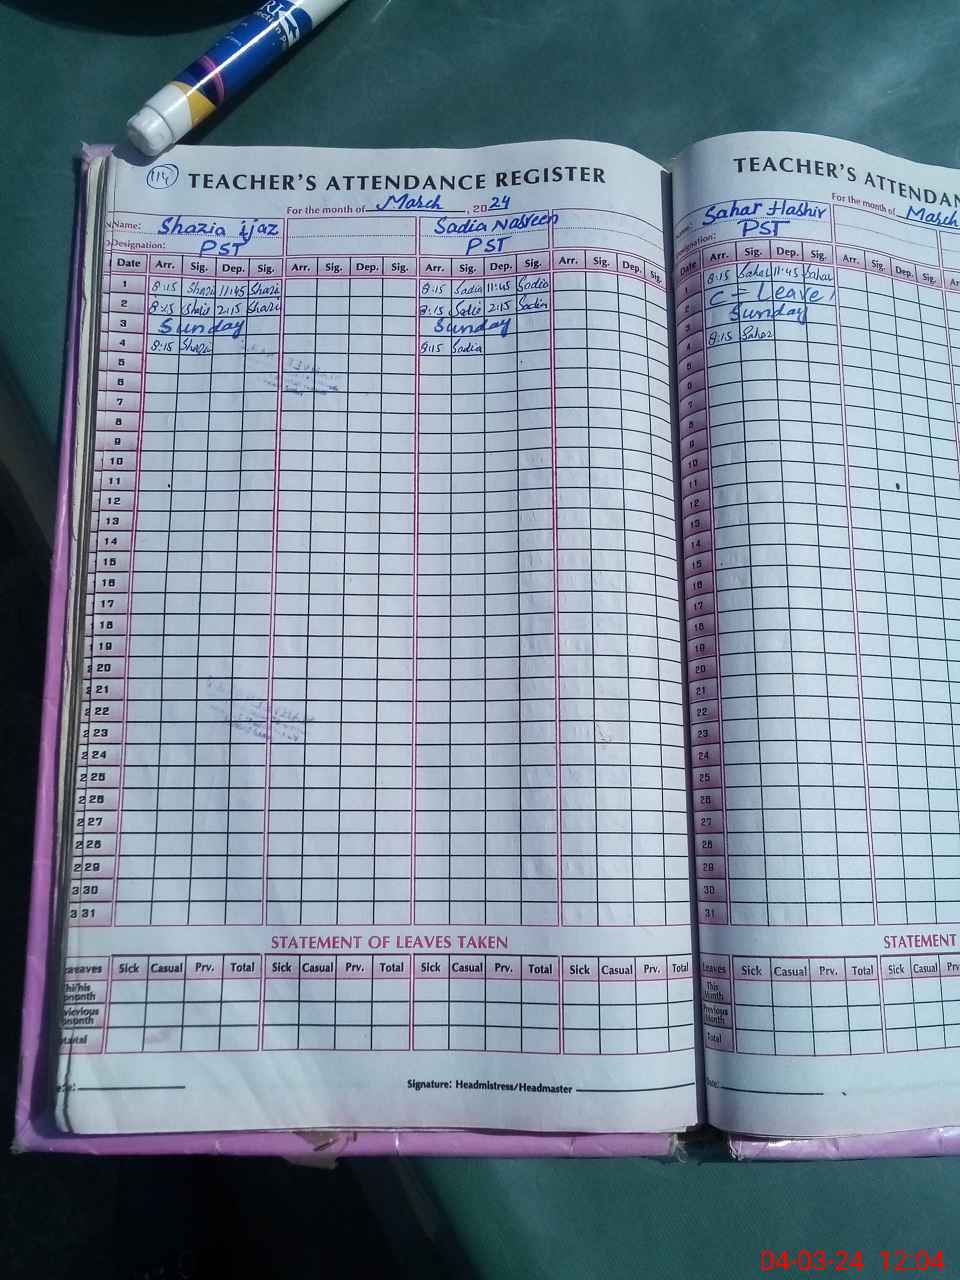 114
TEACHER'S ATTENDANCE REGISTER
For the month of March, 2024
Name: Shazia ijaz Sadia Nasreen
Designation: PST PST
Date Arr. Sig. Dep. Sig. Arr. Sig. Dep. Sig. Arr. Sig. Dep. Sig. Arr. Sig. Dep. Sig.
1 8:15 Shazi 11:45 Shazi 8:15 Sadia 11:45 Sadia
2 8:15 Shazi 2:15 Shazi 8:15 Sadia 2:15 Sadia
3 Sunday Sunday
4 8:15 Shazi 8:15 Sadia
5
6
7
8
9
10
11
12
13
14
15
16
17
18
19
20
21
22
23
24
25
26
27
28
29
30
31
STATEMENT OF LEAVES TAKEN
Leaves Sick Casual Prv. Total Sick Casual Prv. Total Sick Casual Prv. Total Sick Casual Prv. Total
This
month
Previous
month
Total
Signature: Headmistress/Headmaster
TEACHER'S ATTENDAN
For the month of March
Sahar Hashir
Designation: PST
Date Arr. Sig. Dep. Sig. Arr. Sig. Dep. Sig.
1 8:15 Sahar 11:45 Sahar
2 C = Leave
3 Sunday
4 8:15 Sahar
5
6
7
8
9
10
11
12
13
14
15
16
17
18
19
20
21
22
23
24
25
26
27
28
29
30
31
STATEMENT
Leaves Sick Casual Prv. Total Sick Casual Prv.
This
Month
Previous
Month
Total
Date:
04-03-24 12:04